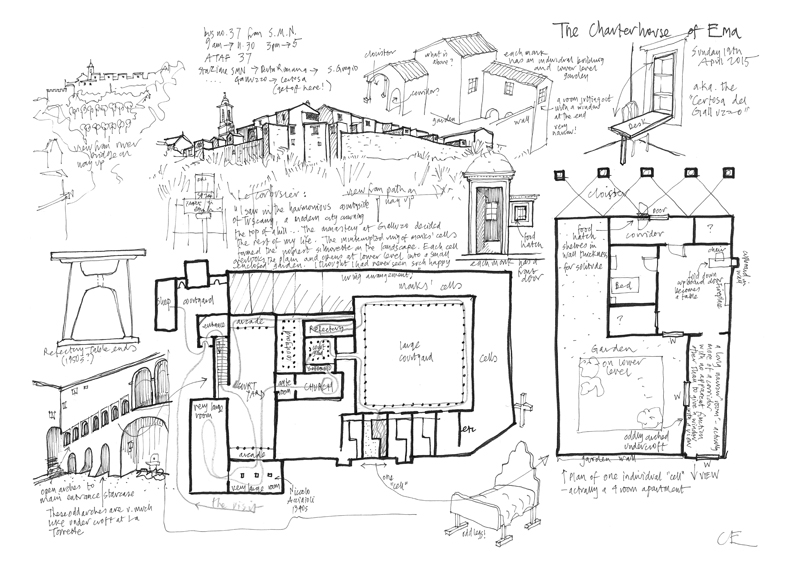 The Charterhouse of Ema
Sunday 19th
April 2015
a.k.a. the
"Certosa del
Galluzzo"
bus no. 37 from S.M.N.
9am → 11.30 3pm → 5
ATAF 37
Stazione SMN → Porta Romana → S. Gaggio
.... Galluzzo → Certosa
(get off here!)
view from river
bridge on
way up
cloister
what is
above?
corridor?
garden
wall
each monk
has an individual building
and lower level
garden
a room jutting out
with a window
at the end
very
narrow!
Desk
view from path on
way up
Le Corbusier:
"I saw in the harmonious countryside
of Tuscany, a modern city crowning
the top of a hill... The monastery at Galluzzo decided
the rest of my life. The uninterrupted ring of monks' cells
formed the noblest silhouette in the landscape. Each cell
overlooks the plain and opens at lower level into a small
enclosed garden. I thought I had never seen such happy
living arrangements"
food
hatch
each monk has a
front door
Refectory table ends
(1950s?)
Shop
courtyard
entrance
arcade
monks' cells
courtyard
Refectory
large
courtyard
cells
COURT
YARD
CHURCH
very large
room
arcade
very large room
etc
one
"cell"
the visit
open arches to
main entrance staircase
These odd arches are v. much
like undercroft at La
Tourette
odd legs!
cloister
door
corridor
?
food
hatch
shelves in
wall thickness
- for solitude
Bed
?
chair
fireplace
fold down
cupboard door
becomes
a table
cupboard in
wall
W
Garden
on lower
level
a long narrow "room" - actually
more of a corridor
with no apparent function
other than to give a window
with a view
W
oddly arched
undercroft
garden wall
W
VIEW
Plan of one individual "cell"
- actually a 4 room apartment
CE